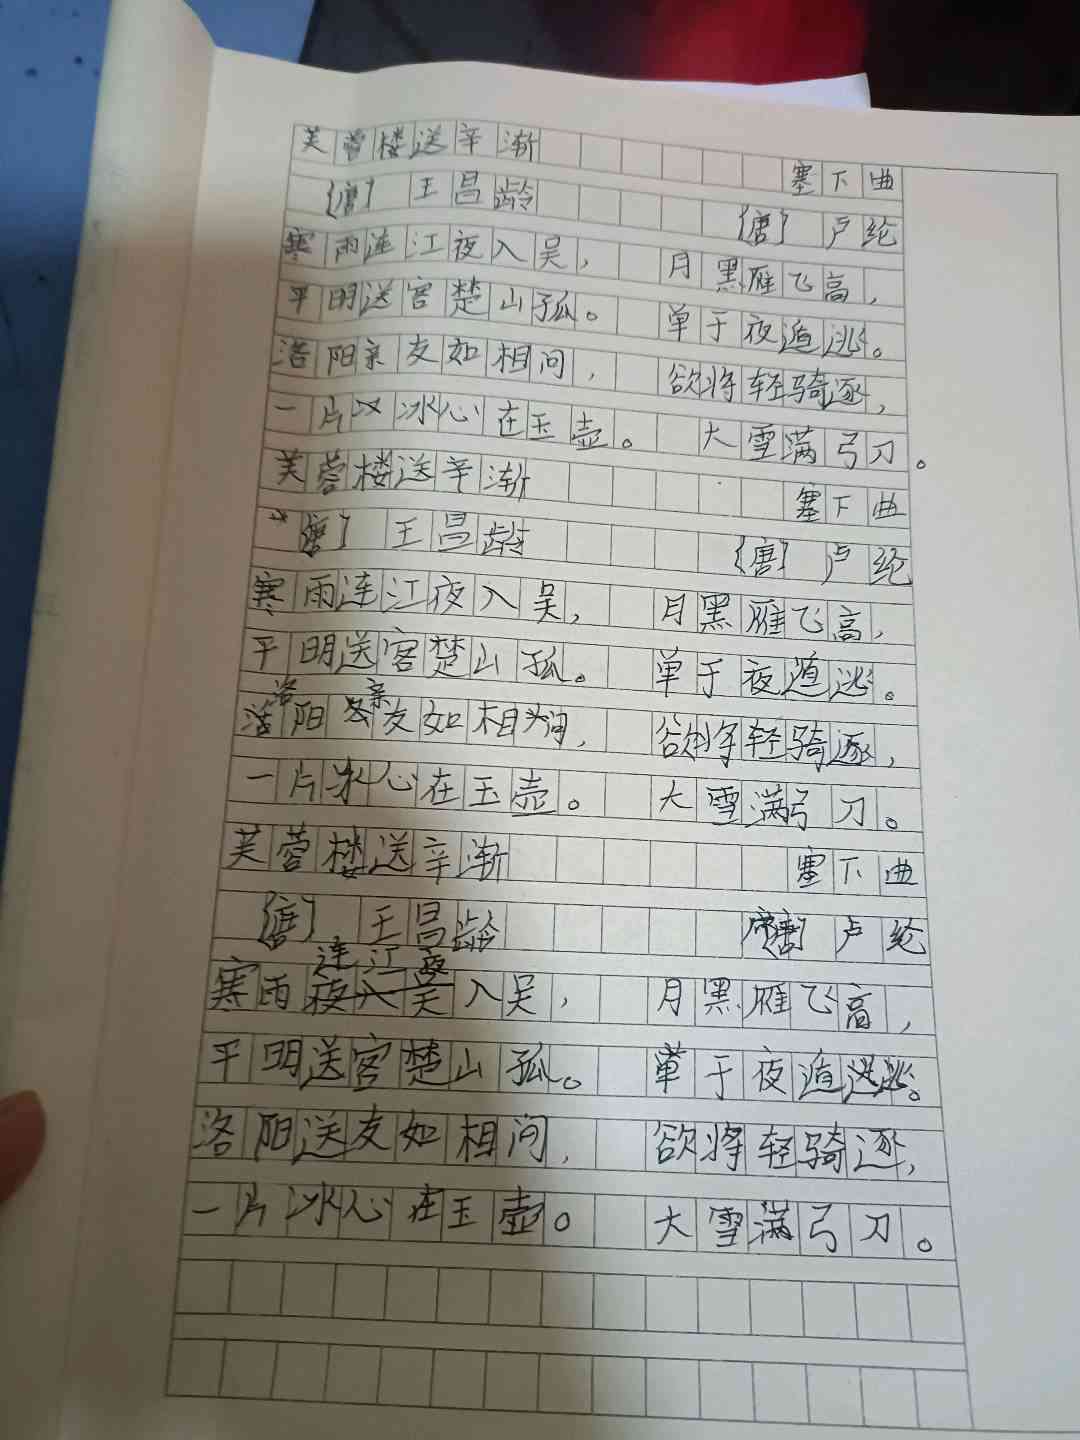 芙蓉楼送辛渐 塞下曲
〔唐〕 王昌龄 〔唐〕 卢纶
寒雨连江夜入吴， 月黑雁飞高，
平明送客楚山孤。 单于夜遁逃。
洛阳亲友如相问， 欲将轻骑逐，
一片冰心在玉壶。 大雪满弓刀。
芙蓉楼送辛渐 塞下曲
〔唐〕 王昌龄 〔唐〕 卢纶
寒雨连江夜入吴， 月黑雁飞高，
平明送客楚山孤。 单于夜遁逃。
洛阳亲友如相问， 欲将轻骑逐，
一片冰心在玉壶。 大雪满弓刀。
芙蓉楼送辛渐 塞下曲
〔唐〕 王昌龄 〔唐〕 卢纶
连江夜
寒雨夜入吴入吴， 月黑雁飞高，
平明送客楚山孤。 单于夜遁逃。
洛阳送友如相问， 欲将轻骑逐，
一片冰心在玉壶。 大雪满弓刀。